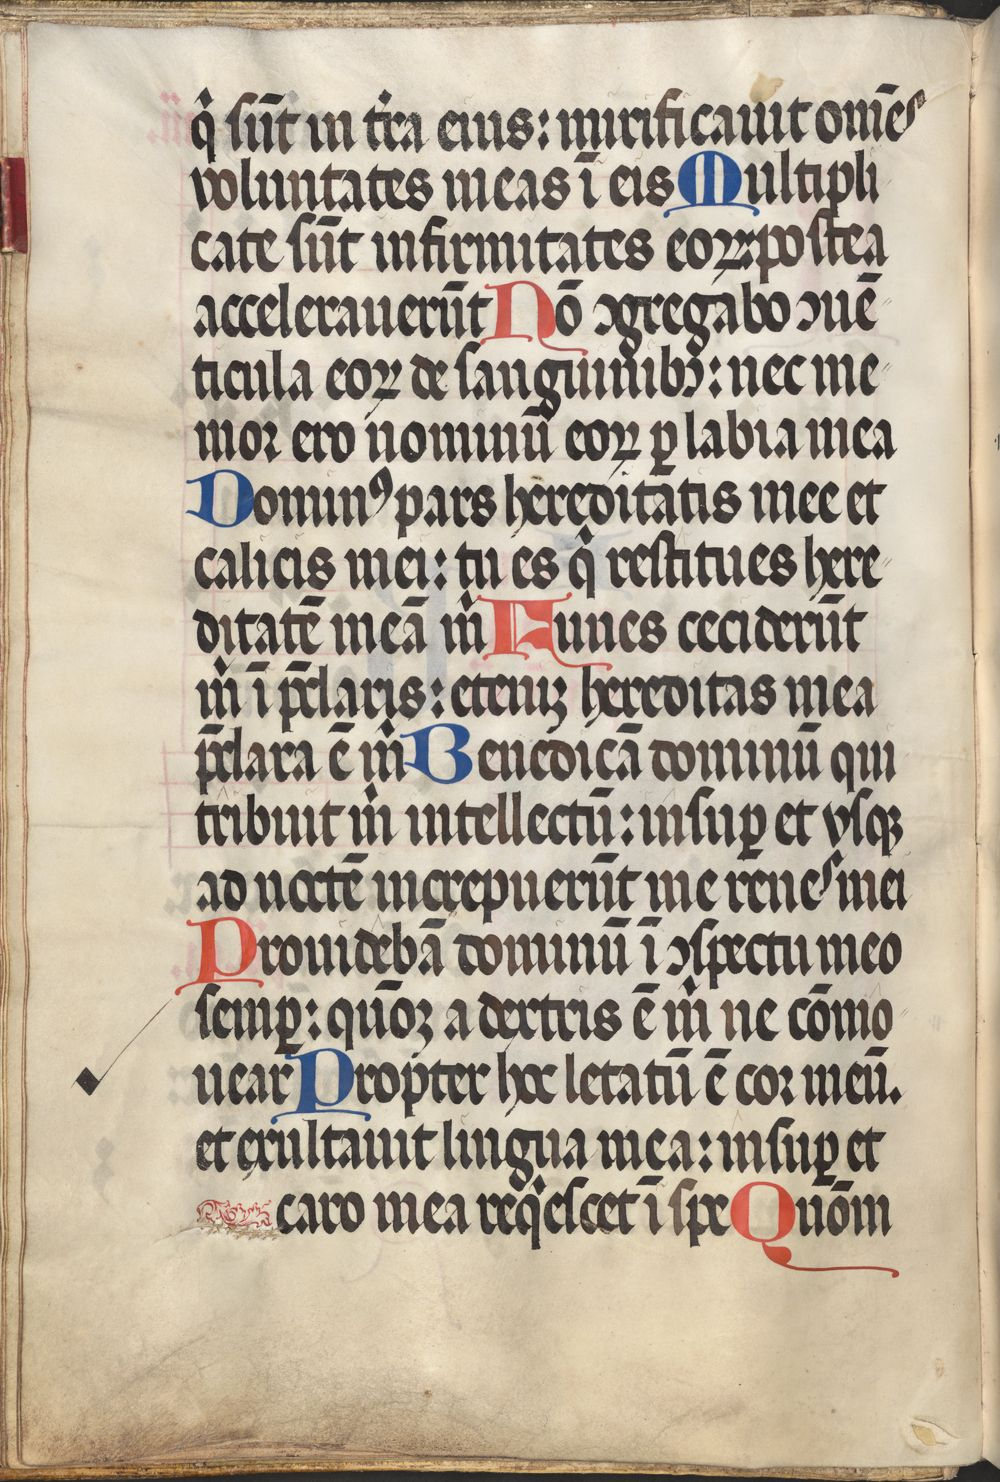 q̇ sūt in tṙa eius: mirificauit om̄es
voluntates meas ī eis Multipli
cate sūt infirmitates eoꝝ: postea
accelerauerūt Nō ꝯgregabo ꝯuē
ticula eoꝝ de sanguinibꝫ: nec me
mor ero nominū eoꝝ ꝑ labia mea
Dominꝰ pars hereditatis mee et
calicis mei: tu es q̇ restitues here
ditatē meā ṁ Funes ceciderūt
ṁ ī p̄claris: etenīꝫ hereditas mea
p̄clara ē ṁ Benedicā dominū qui
tribuit ṁ intellectū: insuꝑ et vsqꝫ
ad noctē increpuerūt me renes mei
Prouidebā dominū ī ꝯspectu meo
semꝑ: quōꝫ a dextris ē ṁ ne cōmo
uear Propter hoc letatū ē cor meū.
et exultauit lingua mea: insuꝑ et
caro mea req̇escet ī spe Quōm